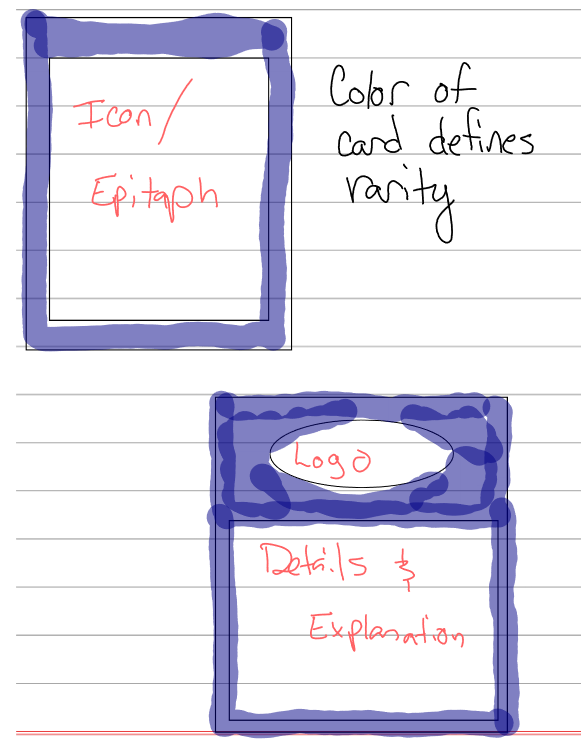 Icon/
Epitaph
Color of
card defines
rarity
Logo
Details &
Explanation